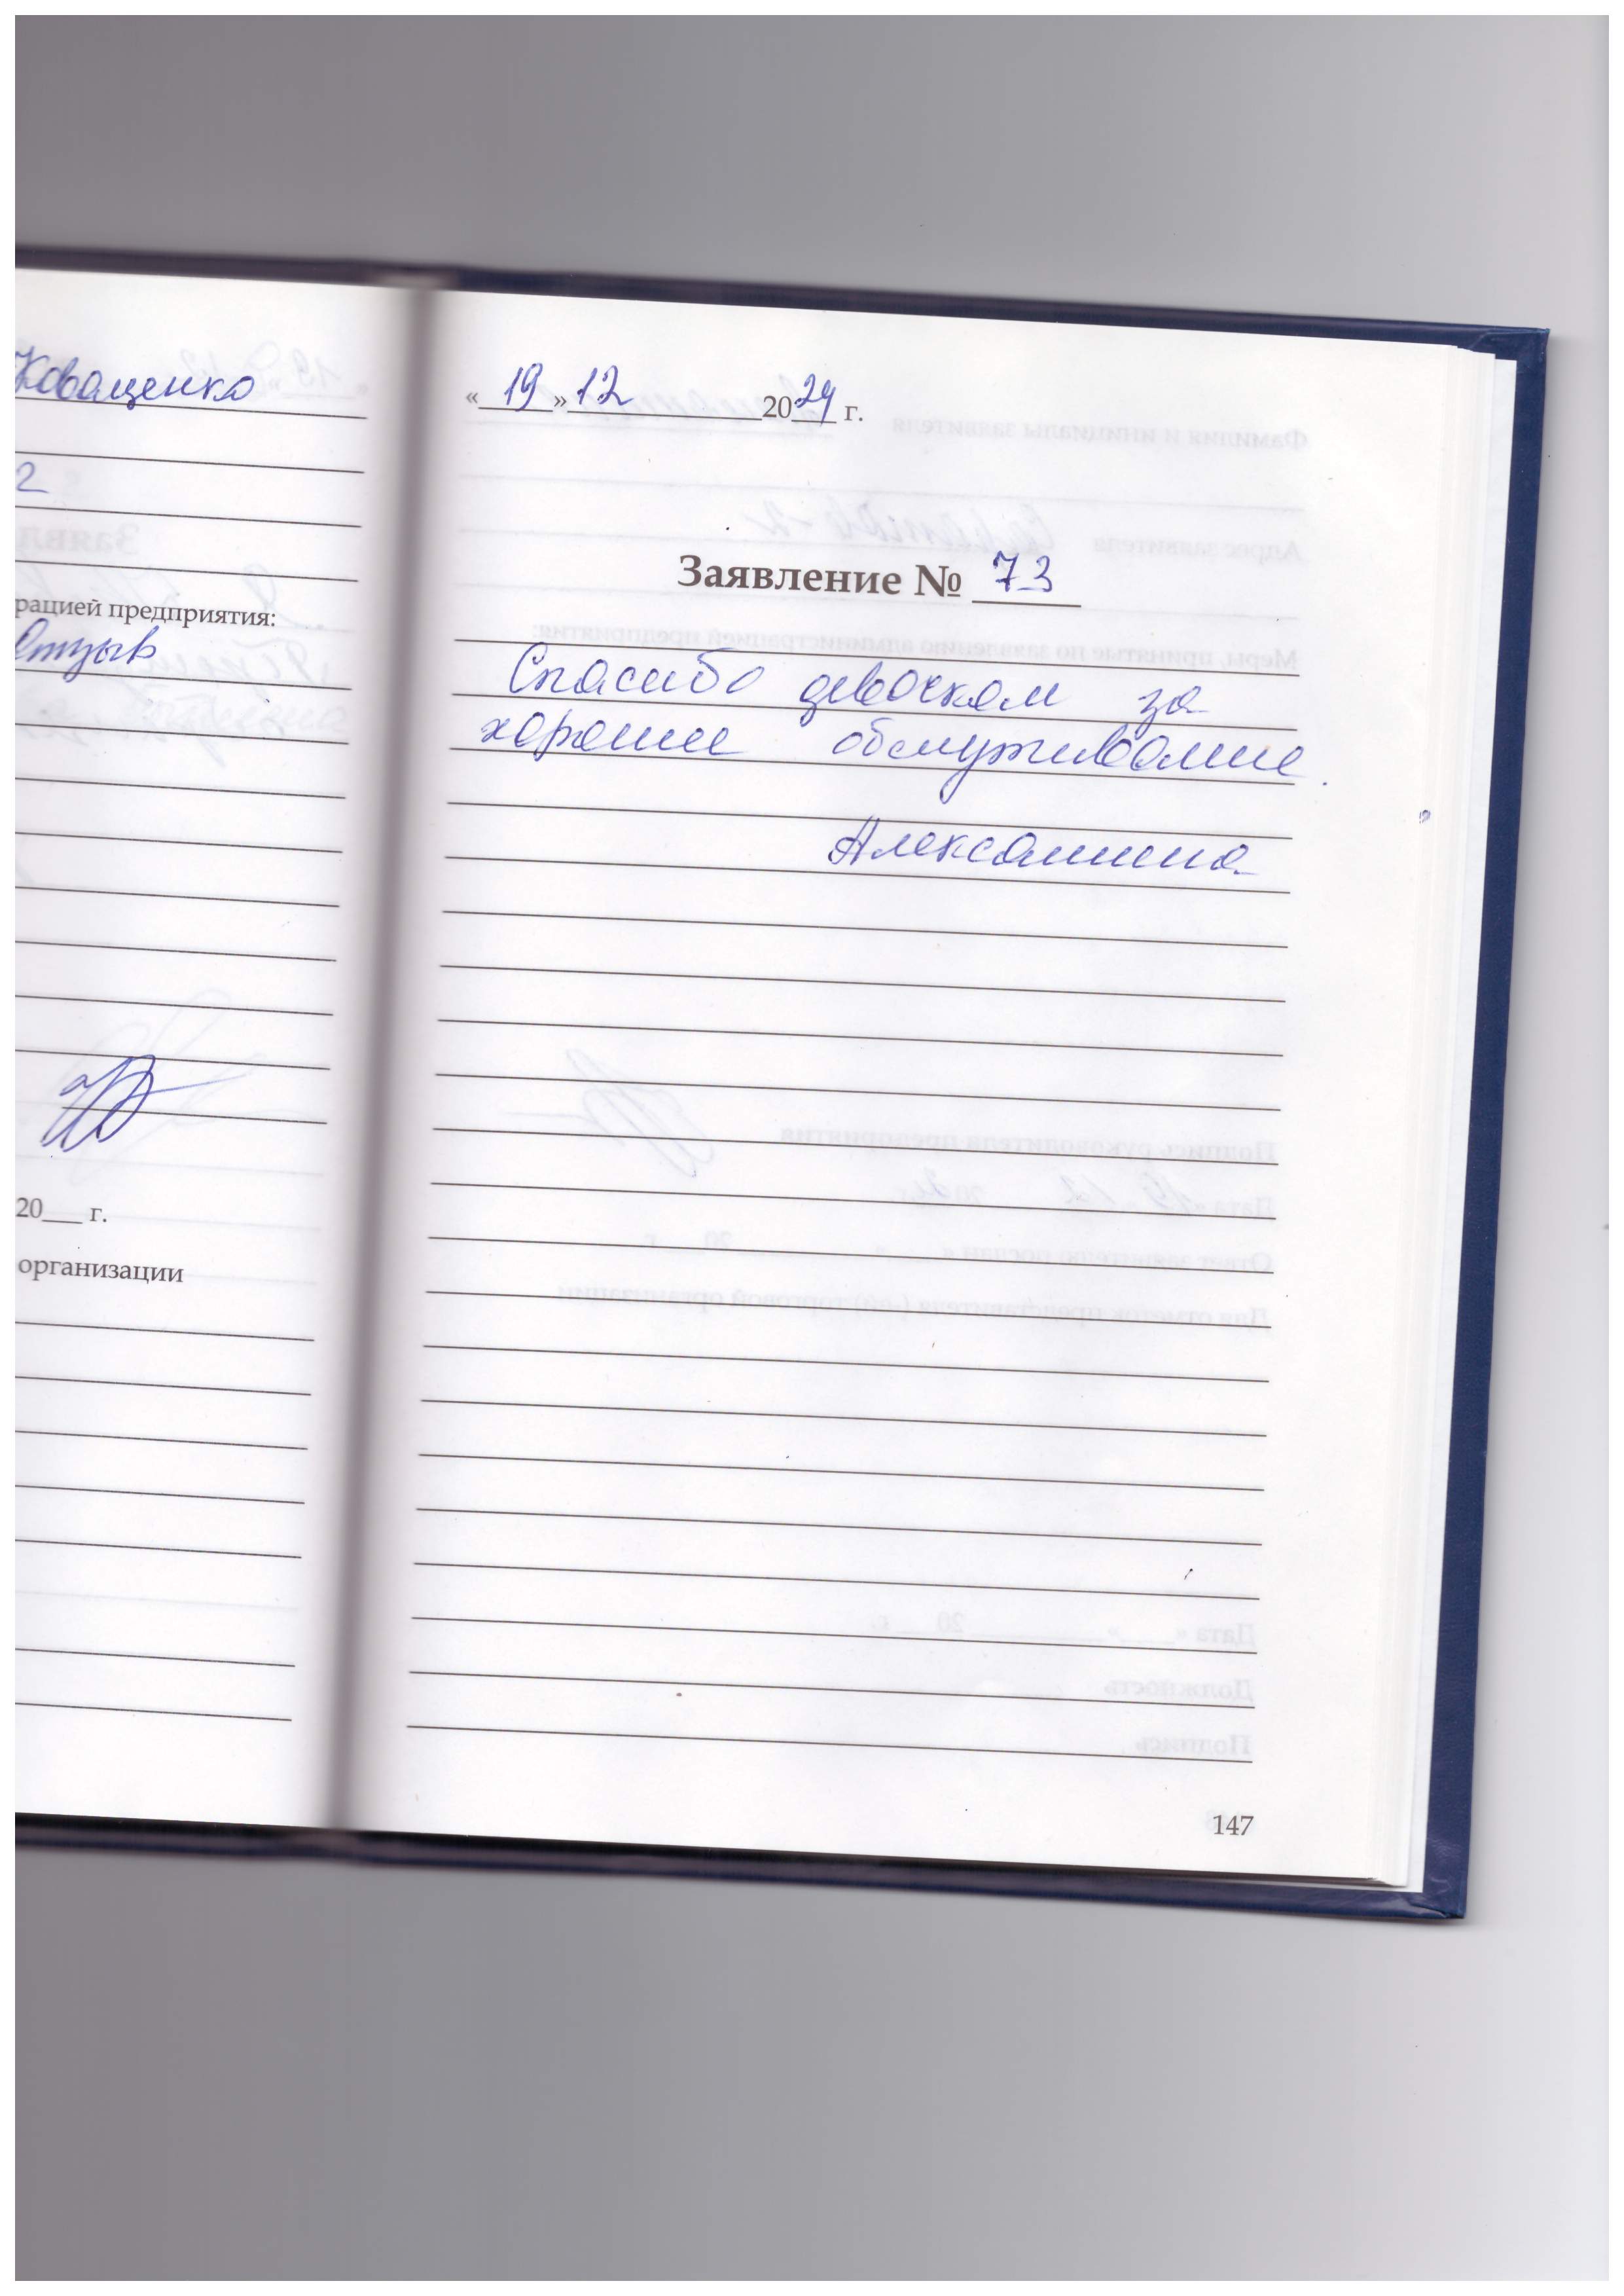 Коваценко
2
рацией предприятия:
Отзыв
20___ г.
организации
«19» 12 2024 г.
Заявление № 73
Спасибо девочкам за
хорошее обслуживание.
Алексанина
147